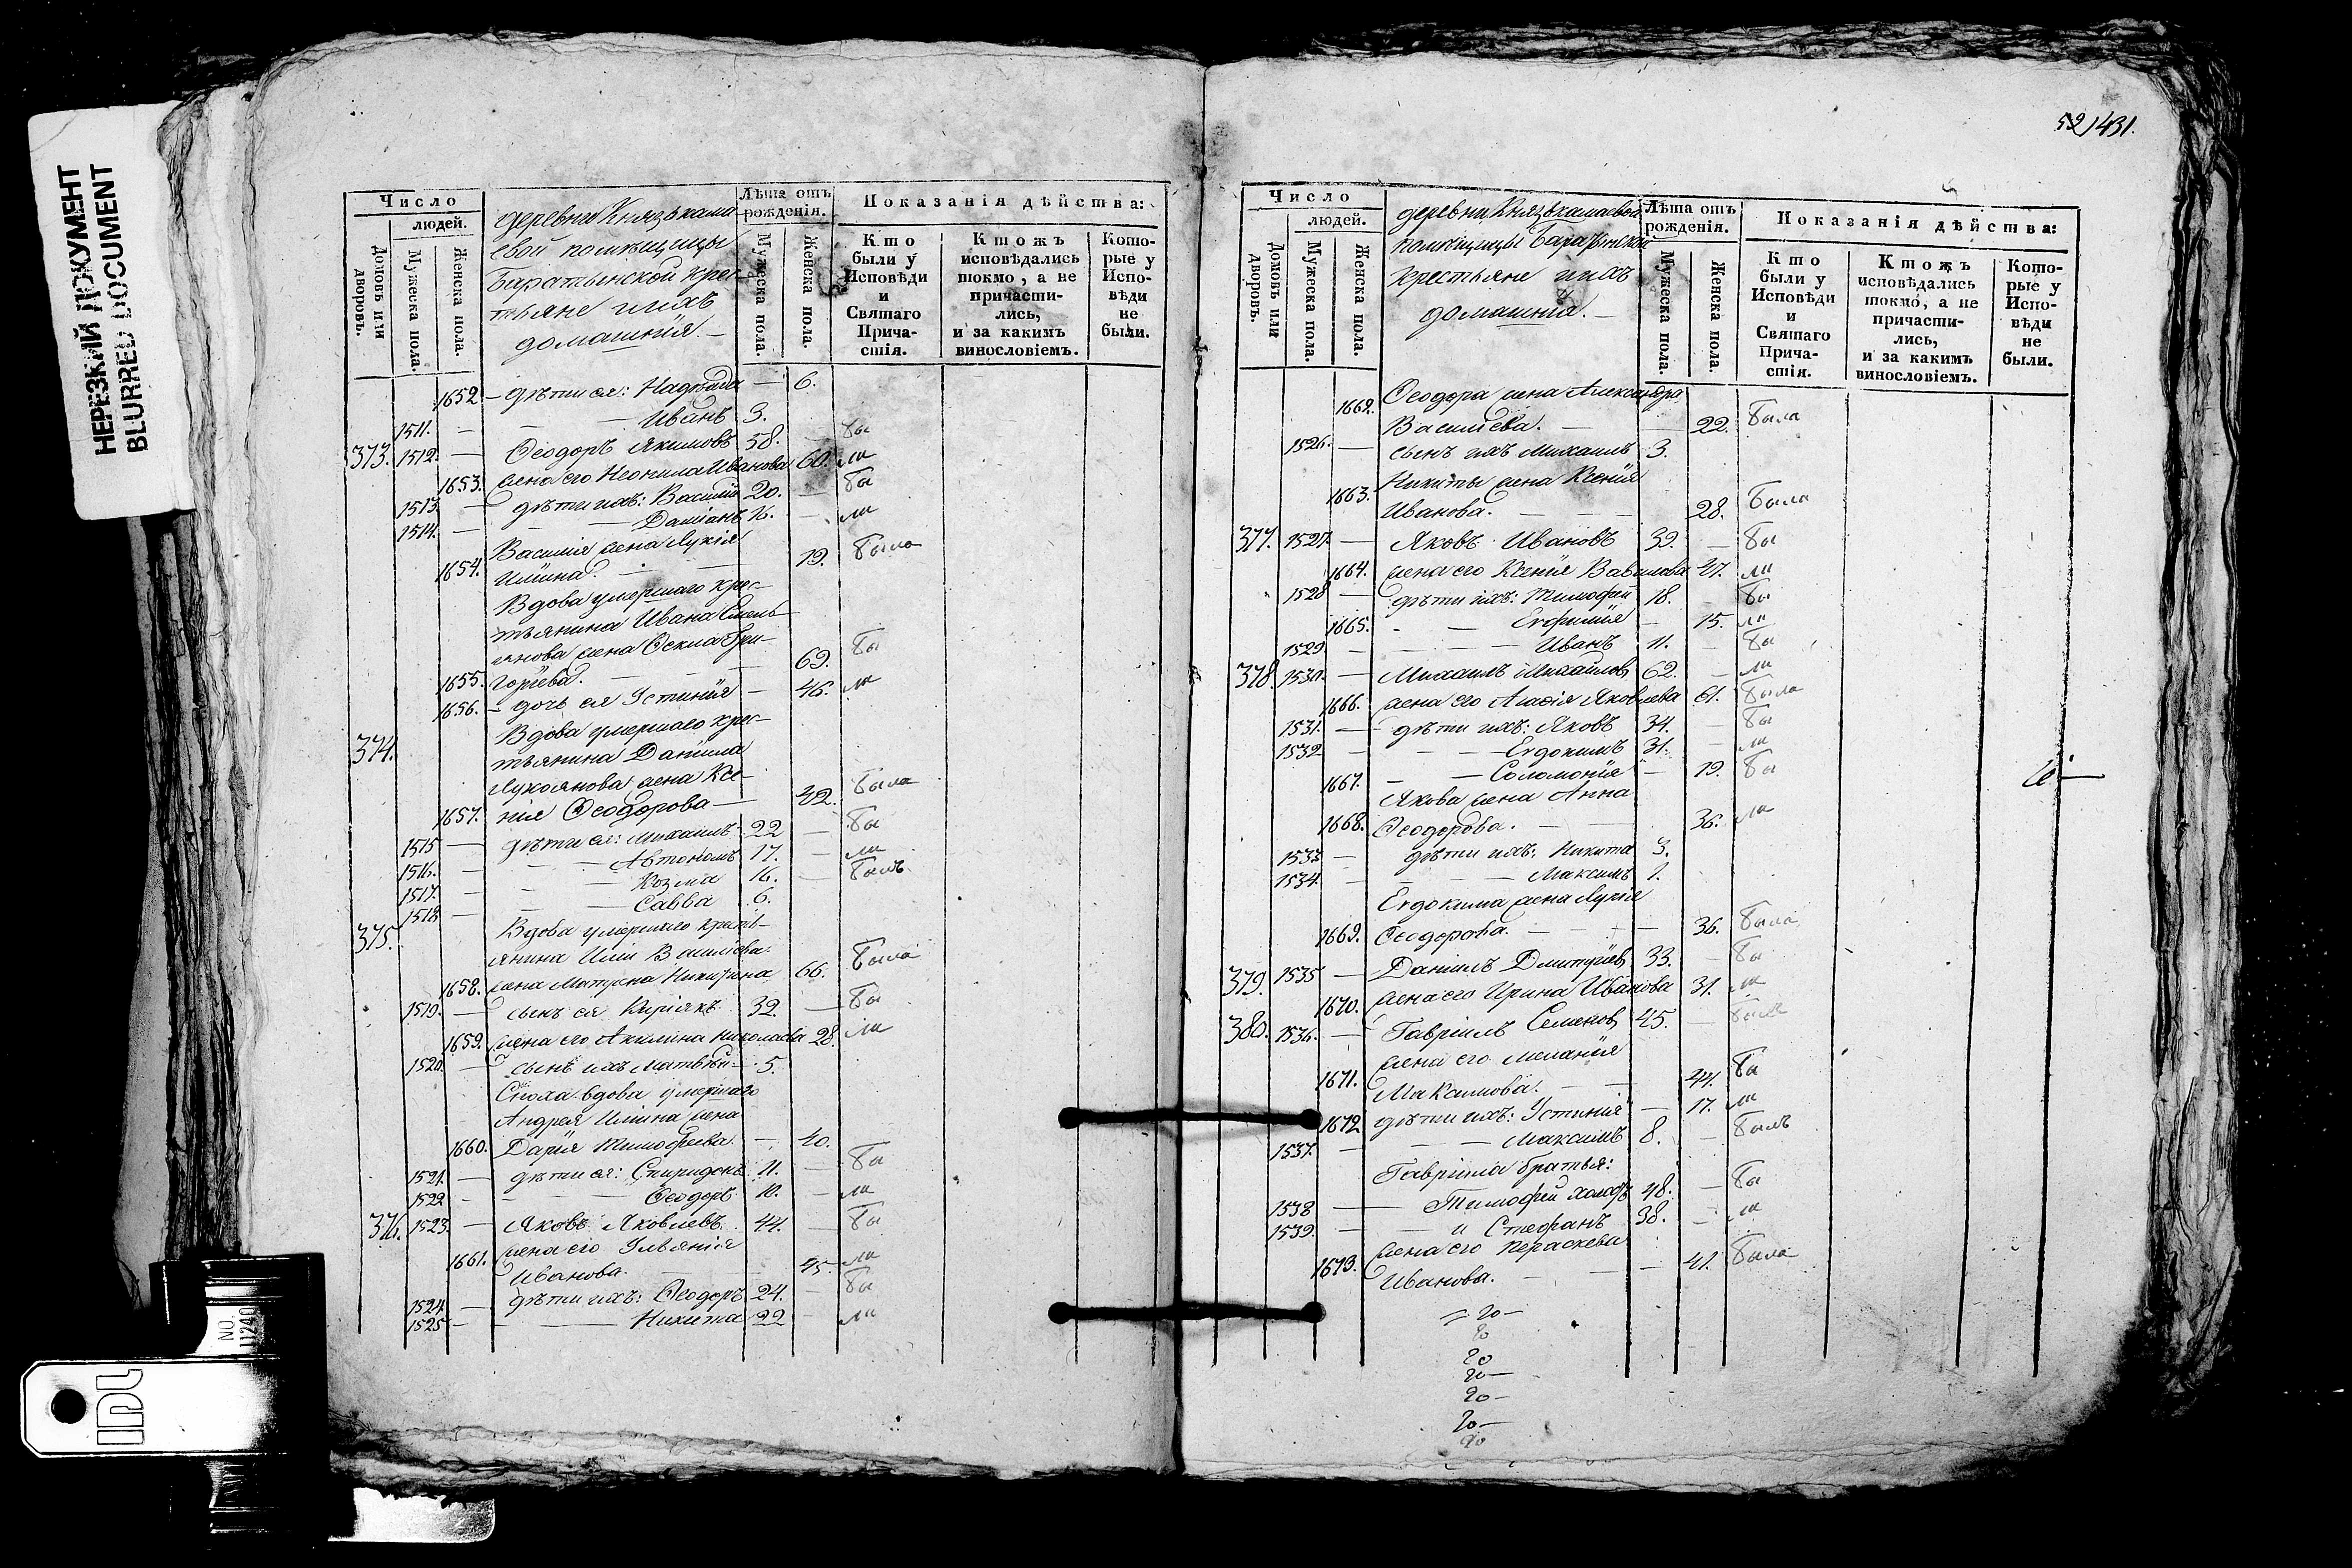 НЕРЕЗКИЙ ДОКУМЕНТ
BLURRED DOCUMENT
Число
людей.
Домовъ или дворовъ.
Мужеска пола.
Женска пола.
деревни Князькама
евой помѣщицы
Баратынской крес
тьяне и ихъ
домашнія.
Лѣта отъ рожденія.
Мужеска пола.
Женска пола.
Показанія дѣйства:
Кто были у Исповѣди и Святаго Причастія.
Ктожъ исповѣдались токмо, а не причастились, и за какимъ винословіемъ.
Которые у Исповѣди не были.
1652 дѣти ея: Надежда — 6.
1511. — Иванъ 3.
373. 1512. — Ѳеодоръ Якимовъ 58. — бы
1653. жена его Неонила Иванова 60. ли
1513 — дѣти ихъ: Василій 20. — бы
1514. — Даміанъ 16. — ли
Василія жена Лукія
1654. Ильина. — 19. была
Вдова умершаго крес
тьянина Ивана Емель
янова жена Ѳекла Гри
1655. горьева. — 69. бы
1656. — дочь ея Устинія — 46. ли
374. Вдова умершаго крес
тьянина Даніила
Лукоянова жена Ксе
1657. нія Ѳеодорова — 42. была
1515 — дѣти ея: Михаилъ 22 — бы
1516. — Автономъ 17. — ли
1517. — Козма 16. — былъ
1518 — Савва 6.
375. Вдова умершаго кресть
янина Ильи Васильева
1658. жена Матрена Никифорова 66. была
1519. — сынъ ея Киріякъ 32. — бы
1659. жена его Акилина Николаева 28. ли
1520. — сынъ ихъ Матвѣй 5.
Сноха вдова умершаго
Андрея Ильина жена
1660. Дарія Тимофеева — 40.
1521. — дѣти ея: Спиридонъ 11. — бы
1522 — Ѳеодоръ 10. — ли
376. 1523. — Яковъ Яковлевъ 44. — бы
1661. жена его Ульянія
Иванова. 45. ли
1524. — дѣти ихъ: Ѳеодоръ 24. — бы
1525 — Никита 22 — ли
52 431.
Число
людей.
Домовъ или дворовъ.
Мужеска пола.
Женска пола.
деревни Князькамаевой
помѣщицы Баратынской
крестьяне и ихъ
домашнія.
Лѣта отъ рожденія.
Мужеска пола.
Женска пола.
Показанія дѣйства:
Кто были у Исповѣди и Святаго Причастія.
Ктожъ исповѣдались токмо, а не причастились, и за какимъ винословіемъ.
Которые у Исповѣди не были.
1662. Ѳеодора жена Александра
Васильева. — 22. была
1526. — сынъ ихъ Михаилъ 3.
1663. Никиты жена Ксенія
Иванова. — 28. была
377. 1527 — Яковъ Ивановъ 39. — бы
1664. жена его Ксенія Вавилова 47. ли
1528 — дѣти ихъ: Тимофей 18. бы
1665. — Евфимія — 15. ли
1529 — Иванъ 11. — бы
378. 1530. — Михаилъ Михайловъ 62. — ли
1666. жена его Агафія Яковлева 61. была
1531. — дѣти ихъ: Яковъ 34. — бы
1532 — Евдокимъ 31. — ли
1667. — Соломонія — 19. бы
Якова жена Анна
1668. Ѳеодорова. — 36. ли
1533 — дѣти ихъ: Никита 3.
1534 — Максимъ 1.
Евдокима жена Лукія
1669. Ѳеодорова. — 36. была
379. 1535 — Даніилъ Дмитріевъ 33. — бы
1670. жена его Ирина Иванова 31. ли
380. 1536. — Гавріилъ Семеновъ 45. — былъ
жена его Меланія
1671. Максимова. — 44. бы
1672 дѣти ихъ: Устинія — 17. ли
1537. — Максимъ 8. — былъ
Гавріила братья:
1538 — Тимофей холостъ 48. — бы
1539. — и Стефанъ 38. — ли
жена его Пераскева
1673. Иванова. — 41. была
20 —
20
20
20 —
20 —
20 —
20
NO. 1240
IDC